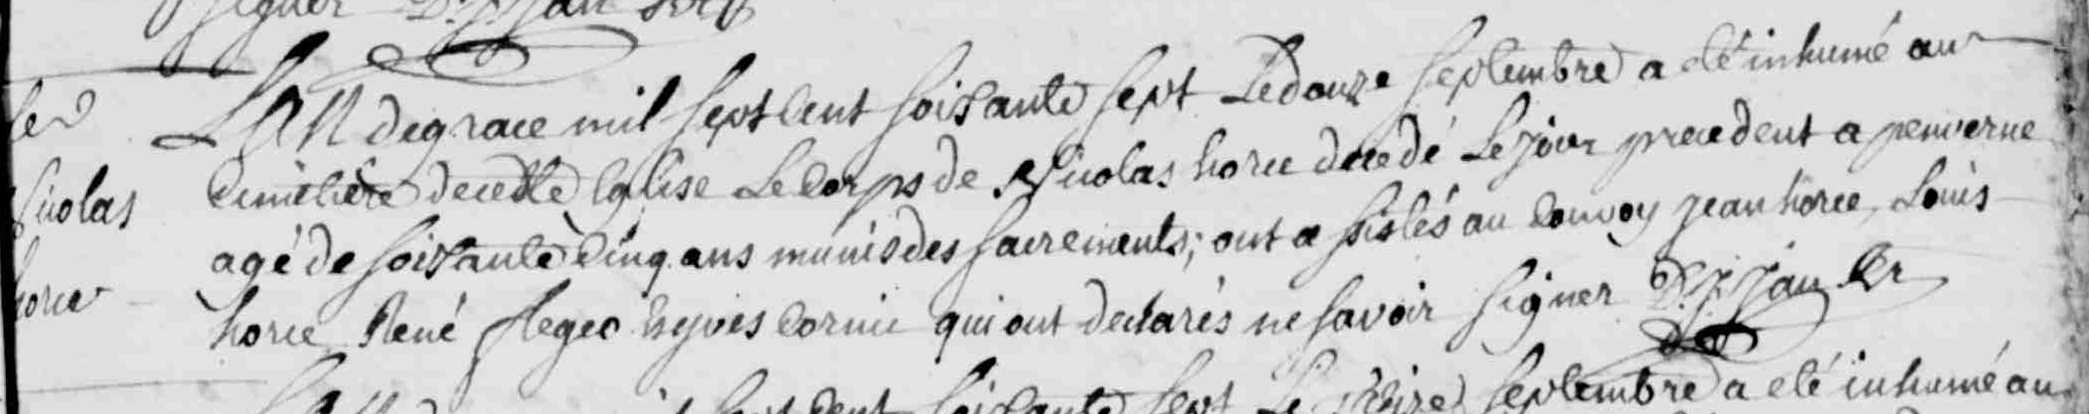 signer
L'An de grace mil sept cent soixante sept Le douze septembre a eté inhumé au
Nicolas Cimetiere de cette Eglise Le Corps de Nicolas horec decedé Le jour precedent a penverne
agé de soixante Cinq ans munis des sacrements; ont assistés au Convoy jean horec, Louis
horec horec René flegeo Et yves Cornic qui ont declarés ne savoir signer
sept cent soixante sept Le treize septembre a eté inhumé au